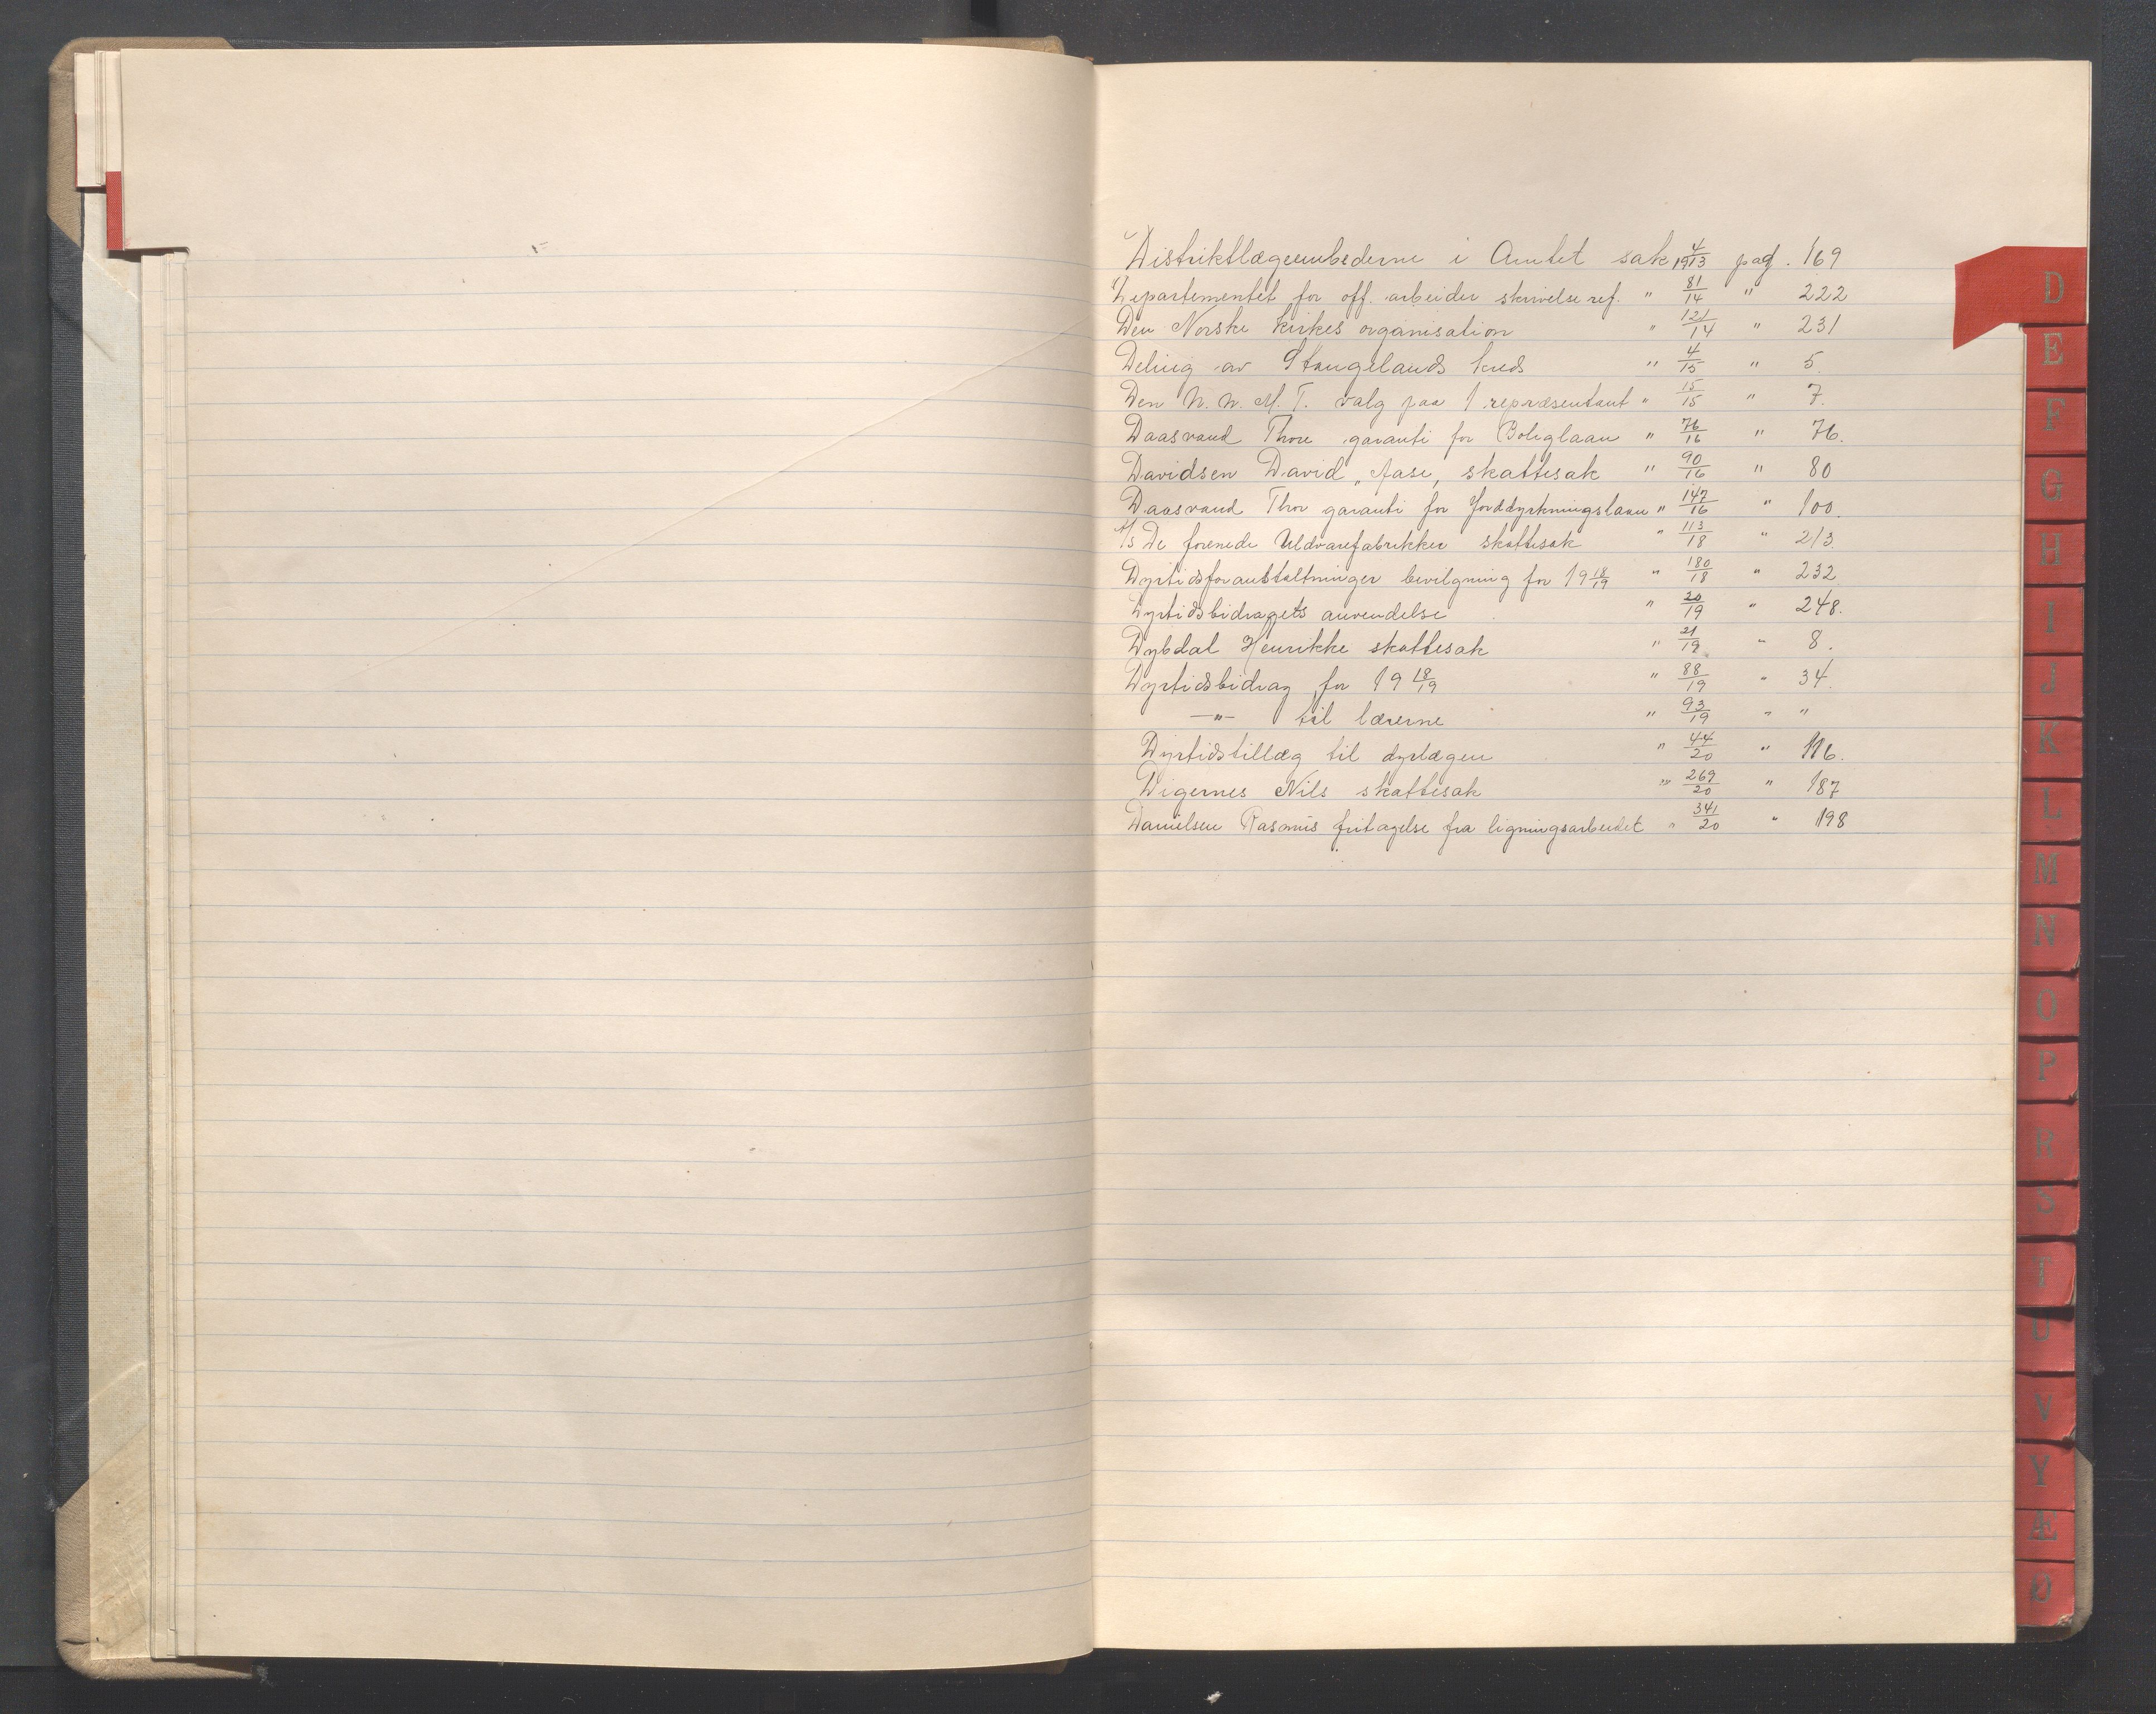 Distriktlægeembederne i Amtet sak 4/1913 pag. 169
Departementet for off. arbeider skrivelse ref. " 81/14 " 222
Den Norske kirkes organisation " 121/14 " 231
Deling av Stangelands kreds " 4/15 " 5.
Den N. W. M. T. valg paa 1 repræsentant " 15/15 " 7.
Daasvand Thore garanti for Boliglaan " 76/16 " 76.
Davidsen David, Aase, skattesak " 90/16 " 80
Daasvand Thor garanti for Jorddyrkningslaan " 147/16 " 100.
A/S De forenede Uldvarefabrikker skattesak " 113/18 " 213.
Dyrtidsforanstaltninger bevilgning for 19 18/19 " 180/18 " 232
Dyrtidsbidragets anvendelse " 20/19 " 248.
Dybdal Henrikke skattesak " 21/19 " 8.
Dyrtidsbidrag for 19 18/19 " 88/19 " 34.
—"— til lærerne " 93/19 " "
Dyrtidstillæg til dyrlægen " 44/20 " 116.
Digernes Nils skattesak " 269/20 " 187
Danielsen Rasmus fritagelse fra ligningsarbeidet " 341/20 " 198
D
E
F
G
H
I
J
K
L
M
N
O
P
R
S
T
U
V
Y
Æ
Ø